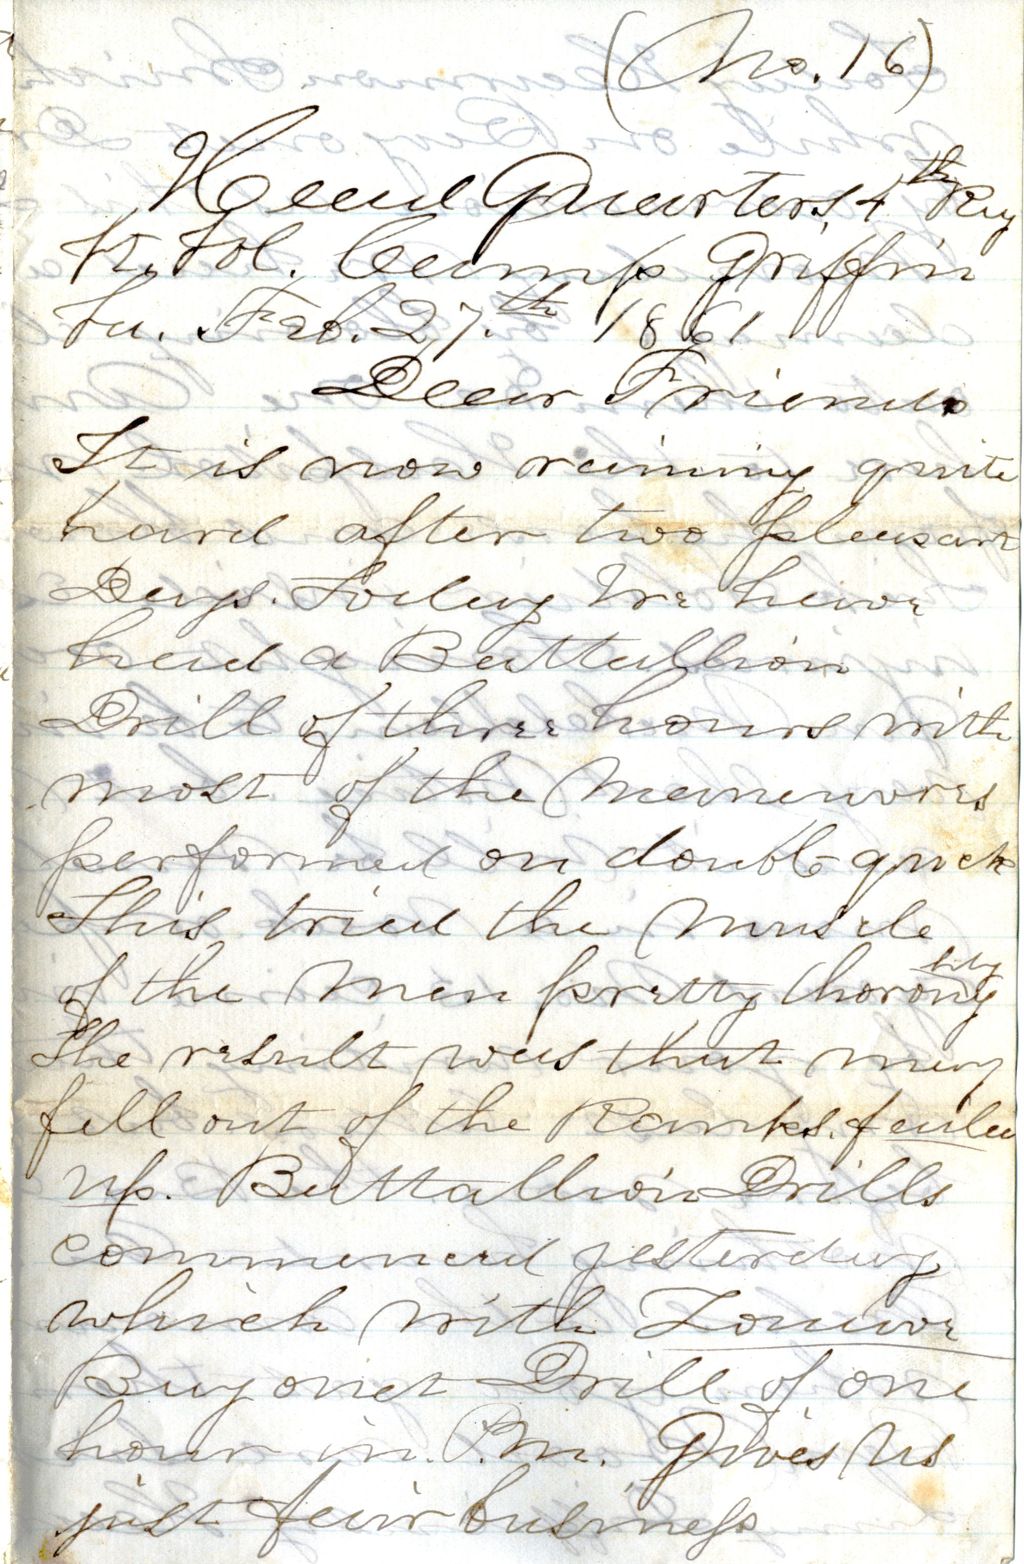 (No. 16)
Head Quarters 4th Reg
Vt. Vol. Camp Griffin
Va. Feb. 27.th 1861
Dear Friend.
It is now raining quite
hard after two pleasant
Days. Today We have
had a Battallion
Drill of three hours with
most of the Maneuvres
performed on double quick
This tried the Muscle
of the Men pretty thoroughly
The result was that many
fell out of the Ranks. failed
up. Battallion Drills
commenced yesterday
which with Zouave
Bayonet Drill of one
hour in P.M. Gives Us
just fair business